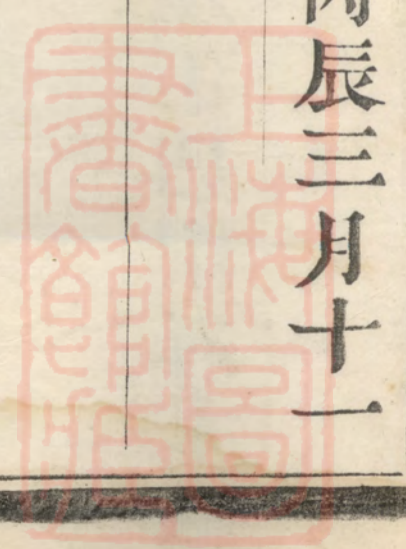 丙辰三月十一
上海圖
書館藏